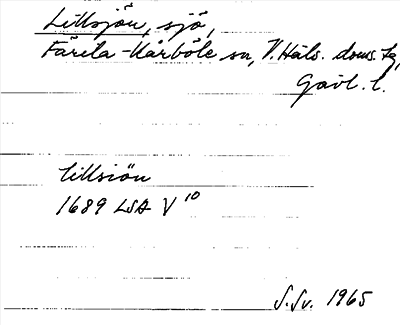 Lillsjön, sjö,
Färila-Kårböle sn, V. Häls. doms. tg,
Gävl. l.
lillsiön
1689 LSA V 10
S.Sv. 1965